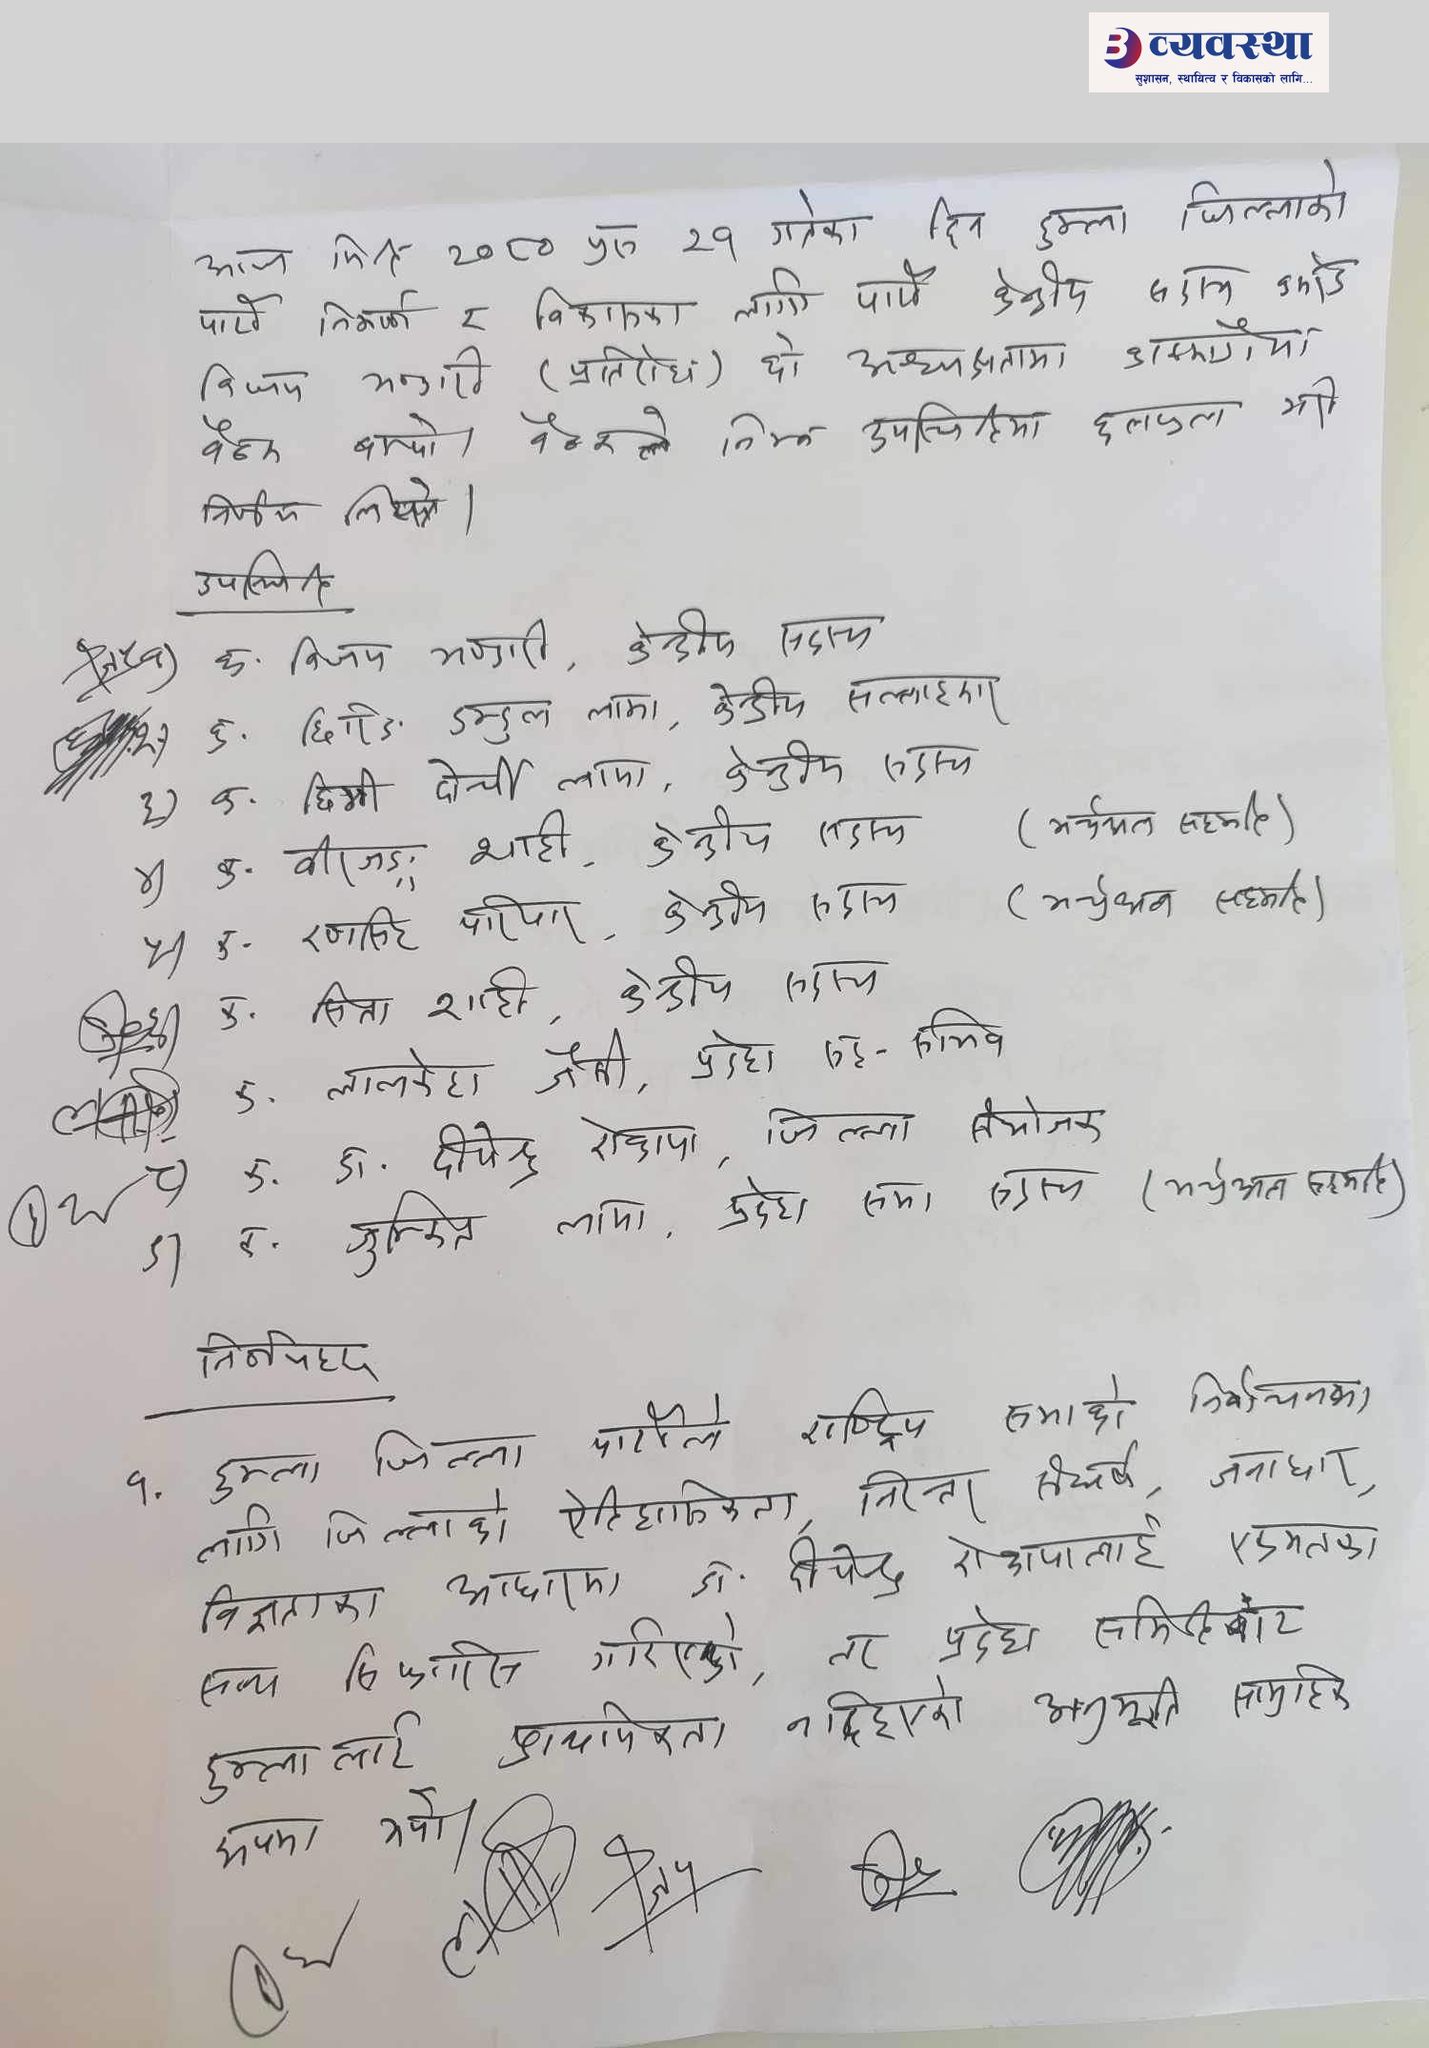 व्यवस्था
सुशासन, स्थायित्व र विकासको लागि...
आज मिति २०८० पुस २१ गतेका दिन हुम्ला जिल्लाको
पार्टी निर्माण र विकासका लागि पार्टी केन्द्रीय सदस्य कमरेड
विजय भण्डारी (प्रतिरोध) को अध्यक्षतामा काठमाण्डौमा
बैठक बस्यो। बैठकले निम्न उपस्थितिमा छलफल गरी
निर्णय लियो।
उपस्थिति
१) क. विजय भण्डारी, केन्द्रीय सदस्य
२) क. छिरिङ डम्डुल लामा, केन्द्रीय सल्लाहकार
३) क. छिमी दोर्ची लामा, केन्द्रीय सदस्य
४) क. वीरजङ्ग शाही, केन्द्रीय सदस्य (भर्चुअल सहमति)
५) क. रणसिंह परियार, केन्द्रीय सदस्य (भर्चुअल सहमति)
६) क. सिता शाही, केन्द्रीय सदस्य
क. लालकेश जैसी, प्रदेश सह-सचिव
८) क. डा. दीपेन्द्र रोकाया, जिल्ला संयोजक
९) क. लामा, प्रदेश सभा सदस्य (भर्चुअल सहमति)
निर्णयहरू
१. हुम्ला जिल्ला पार्टीले राष्ट्रिय सभाको निर्वाचनका
लागि जिल्लाको ऐतिहासिकता, निरन्तर संघर्ष, जनाधार,
विज्ञताका आधारमा डा. दीपेन्द्र रोकायालाई एकमतका
साथ सिफारिस गरिएको, तर प्रदेश समितिबाट
हुम्लालाई प्राथमिकता नदिइएको अनुभूति सामूहिक
रूपमा गर्यो।